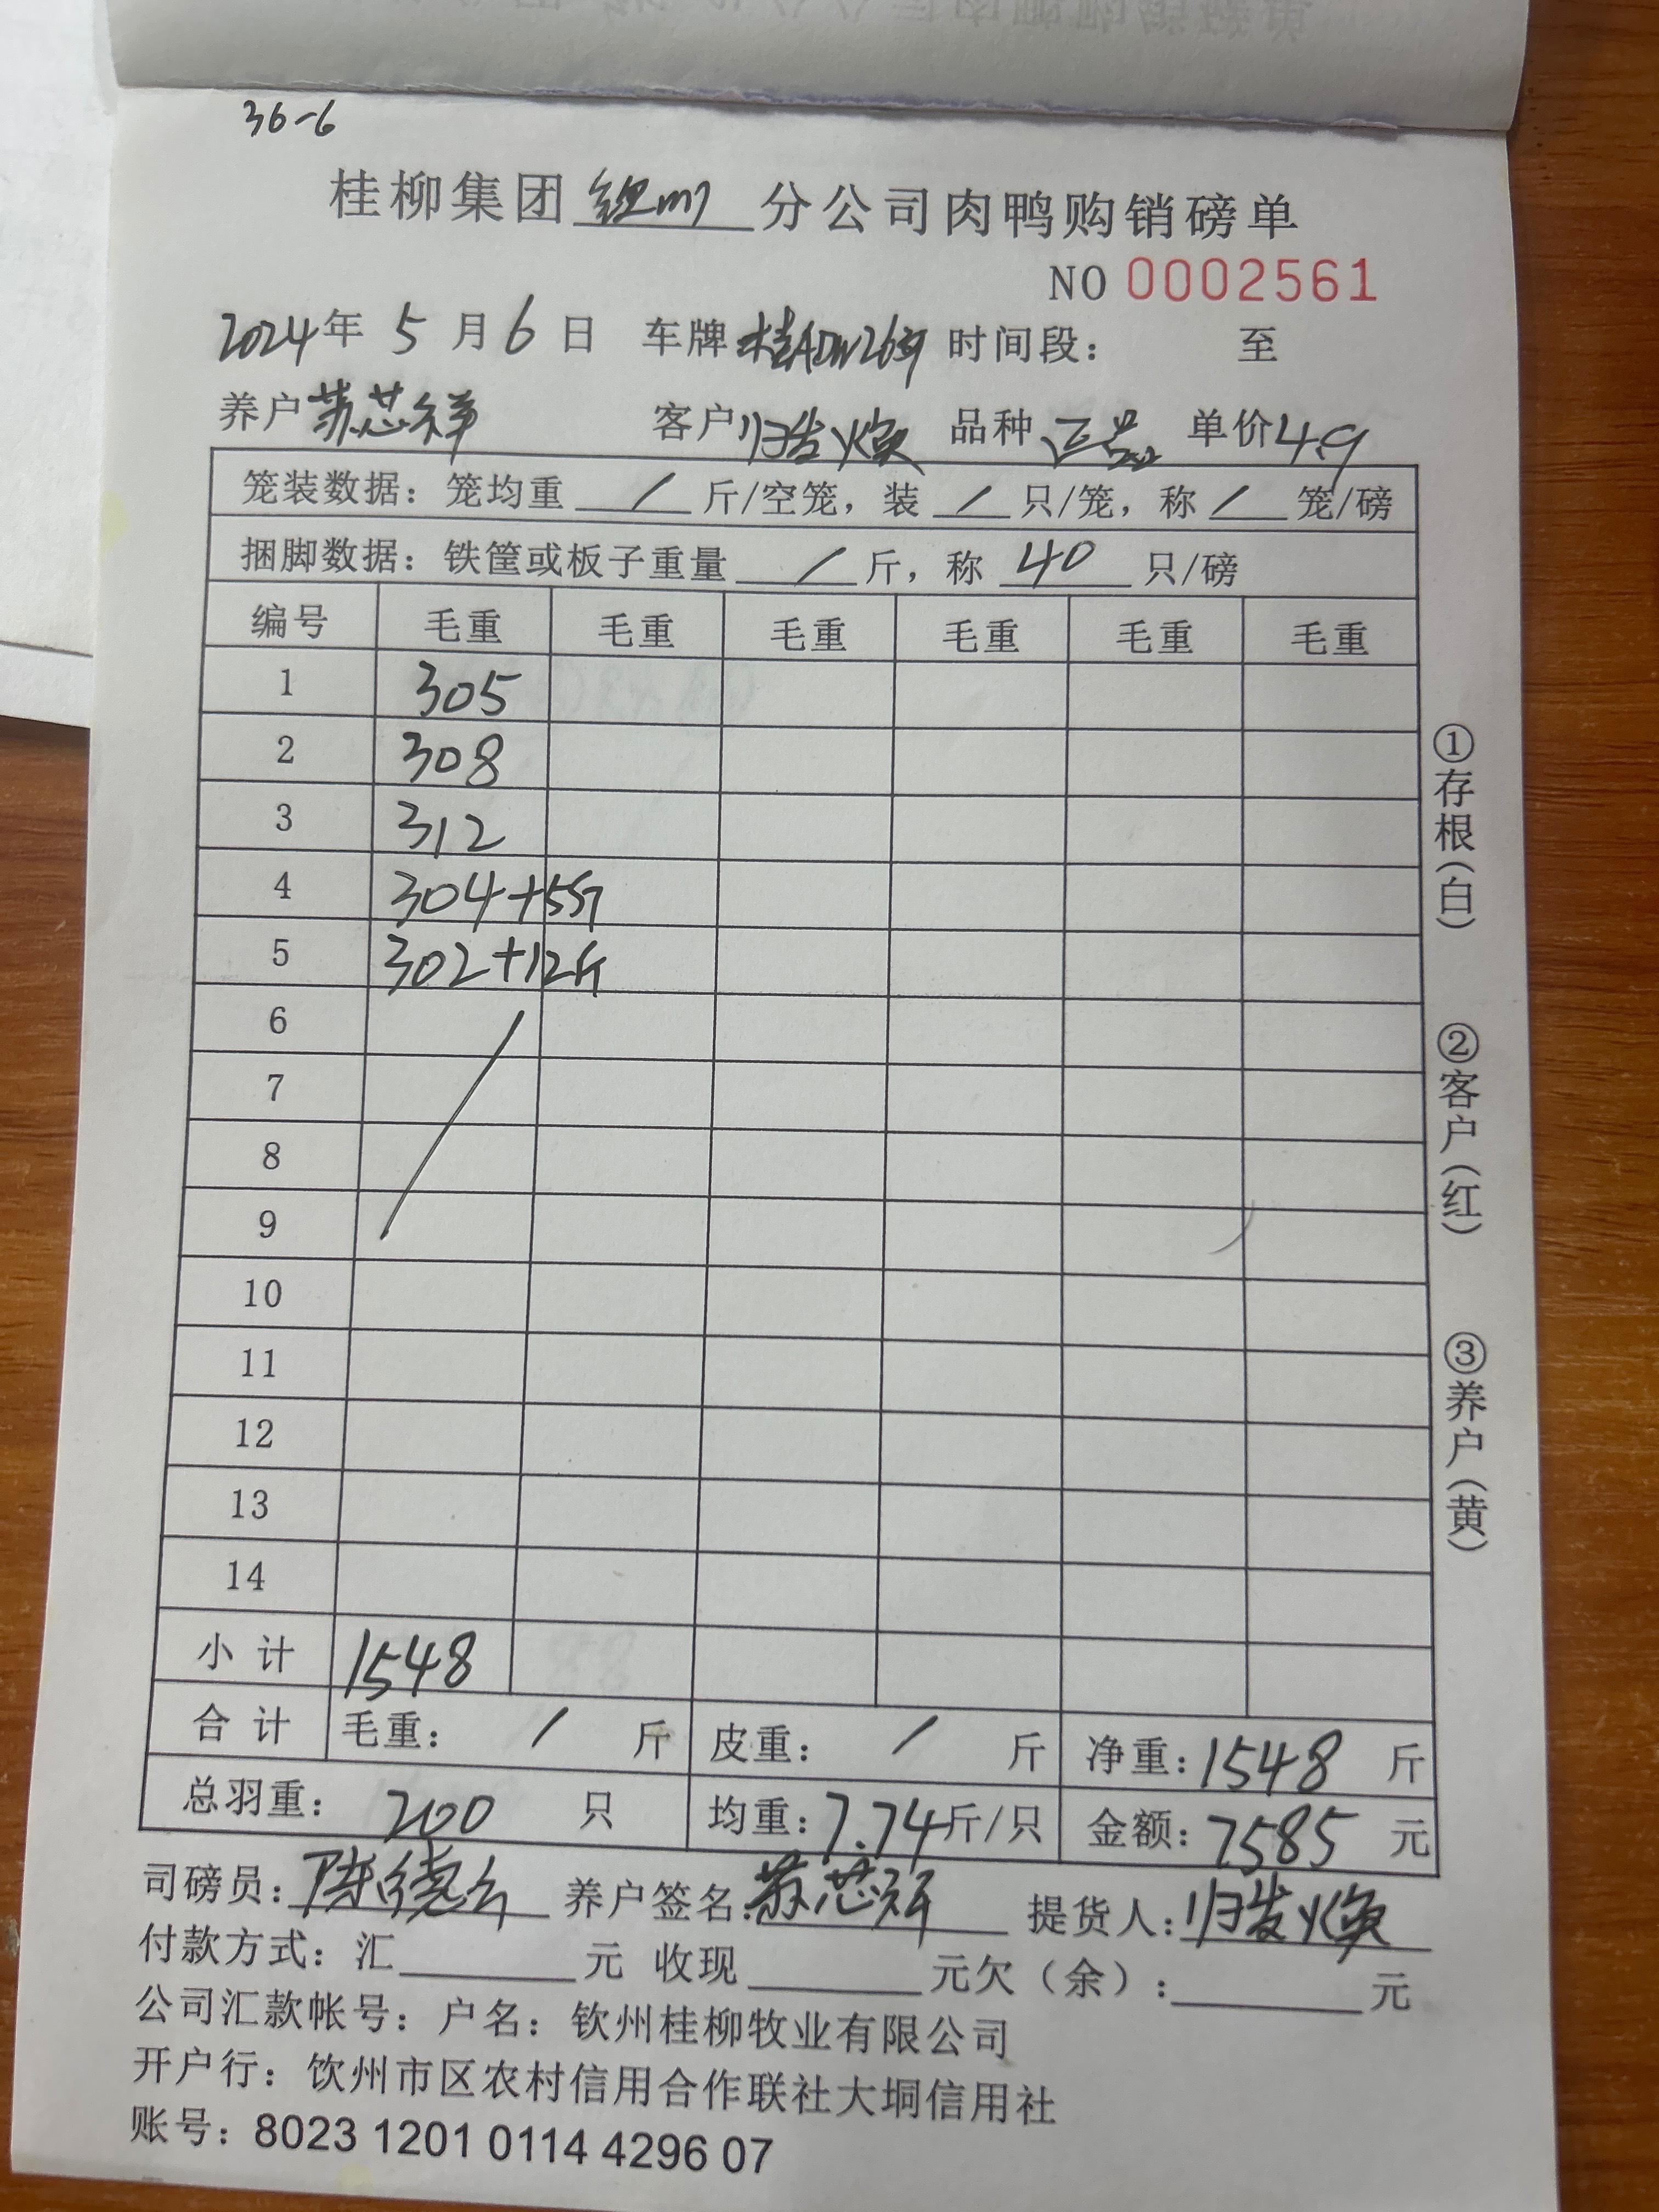 36-6
桂柳集团 钦州 分公司肉鸭购销磅单
NO 0002561
2024年 5 月 6 日 车牌 桂ADW2639 时间段： 至
养户 苏芯祥 客户 归发焕 品种 正品 单价 4.9
笼装数据：笼均重 / 斤/空笼，装 / 只/笼，称 / 笼/磅
捆脚数据：铁筐或板子重量 / 斤，称 40 只/磅
编号 毛重 毛重 毛重 毛重 毛重 毛重
1 305
2 308
3 312
4 304+5斤
5 302+12斤
6
7
8
9
10
11
12
13
14
小 计 1548
合 计 毛重： / 斤 皮重： / 斤 净重：1548 斤
总羽重： 200 只 均重：7.74斤/只 金额：7585 元
司磅员： 养户签名：苏芯祥 提货人：归发焕
付款方式：汇 元 收现 元欠（余）： 元
公司汇款帐号：户名：钦州桂柳牧业有限公司
开户行：钦州市区农村信用合作联社大垌信用社
账号：8023 1201 0114 4296 07
①存根（白）
②客户（红）
③养户（黄）